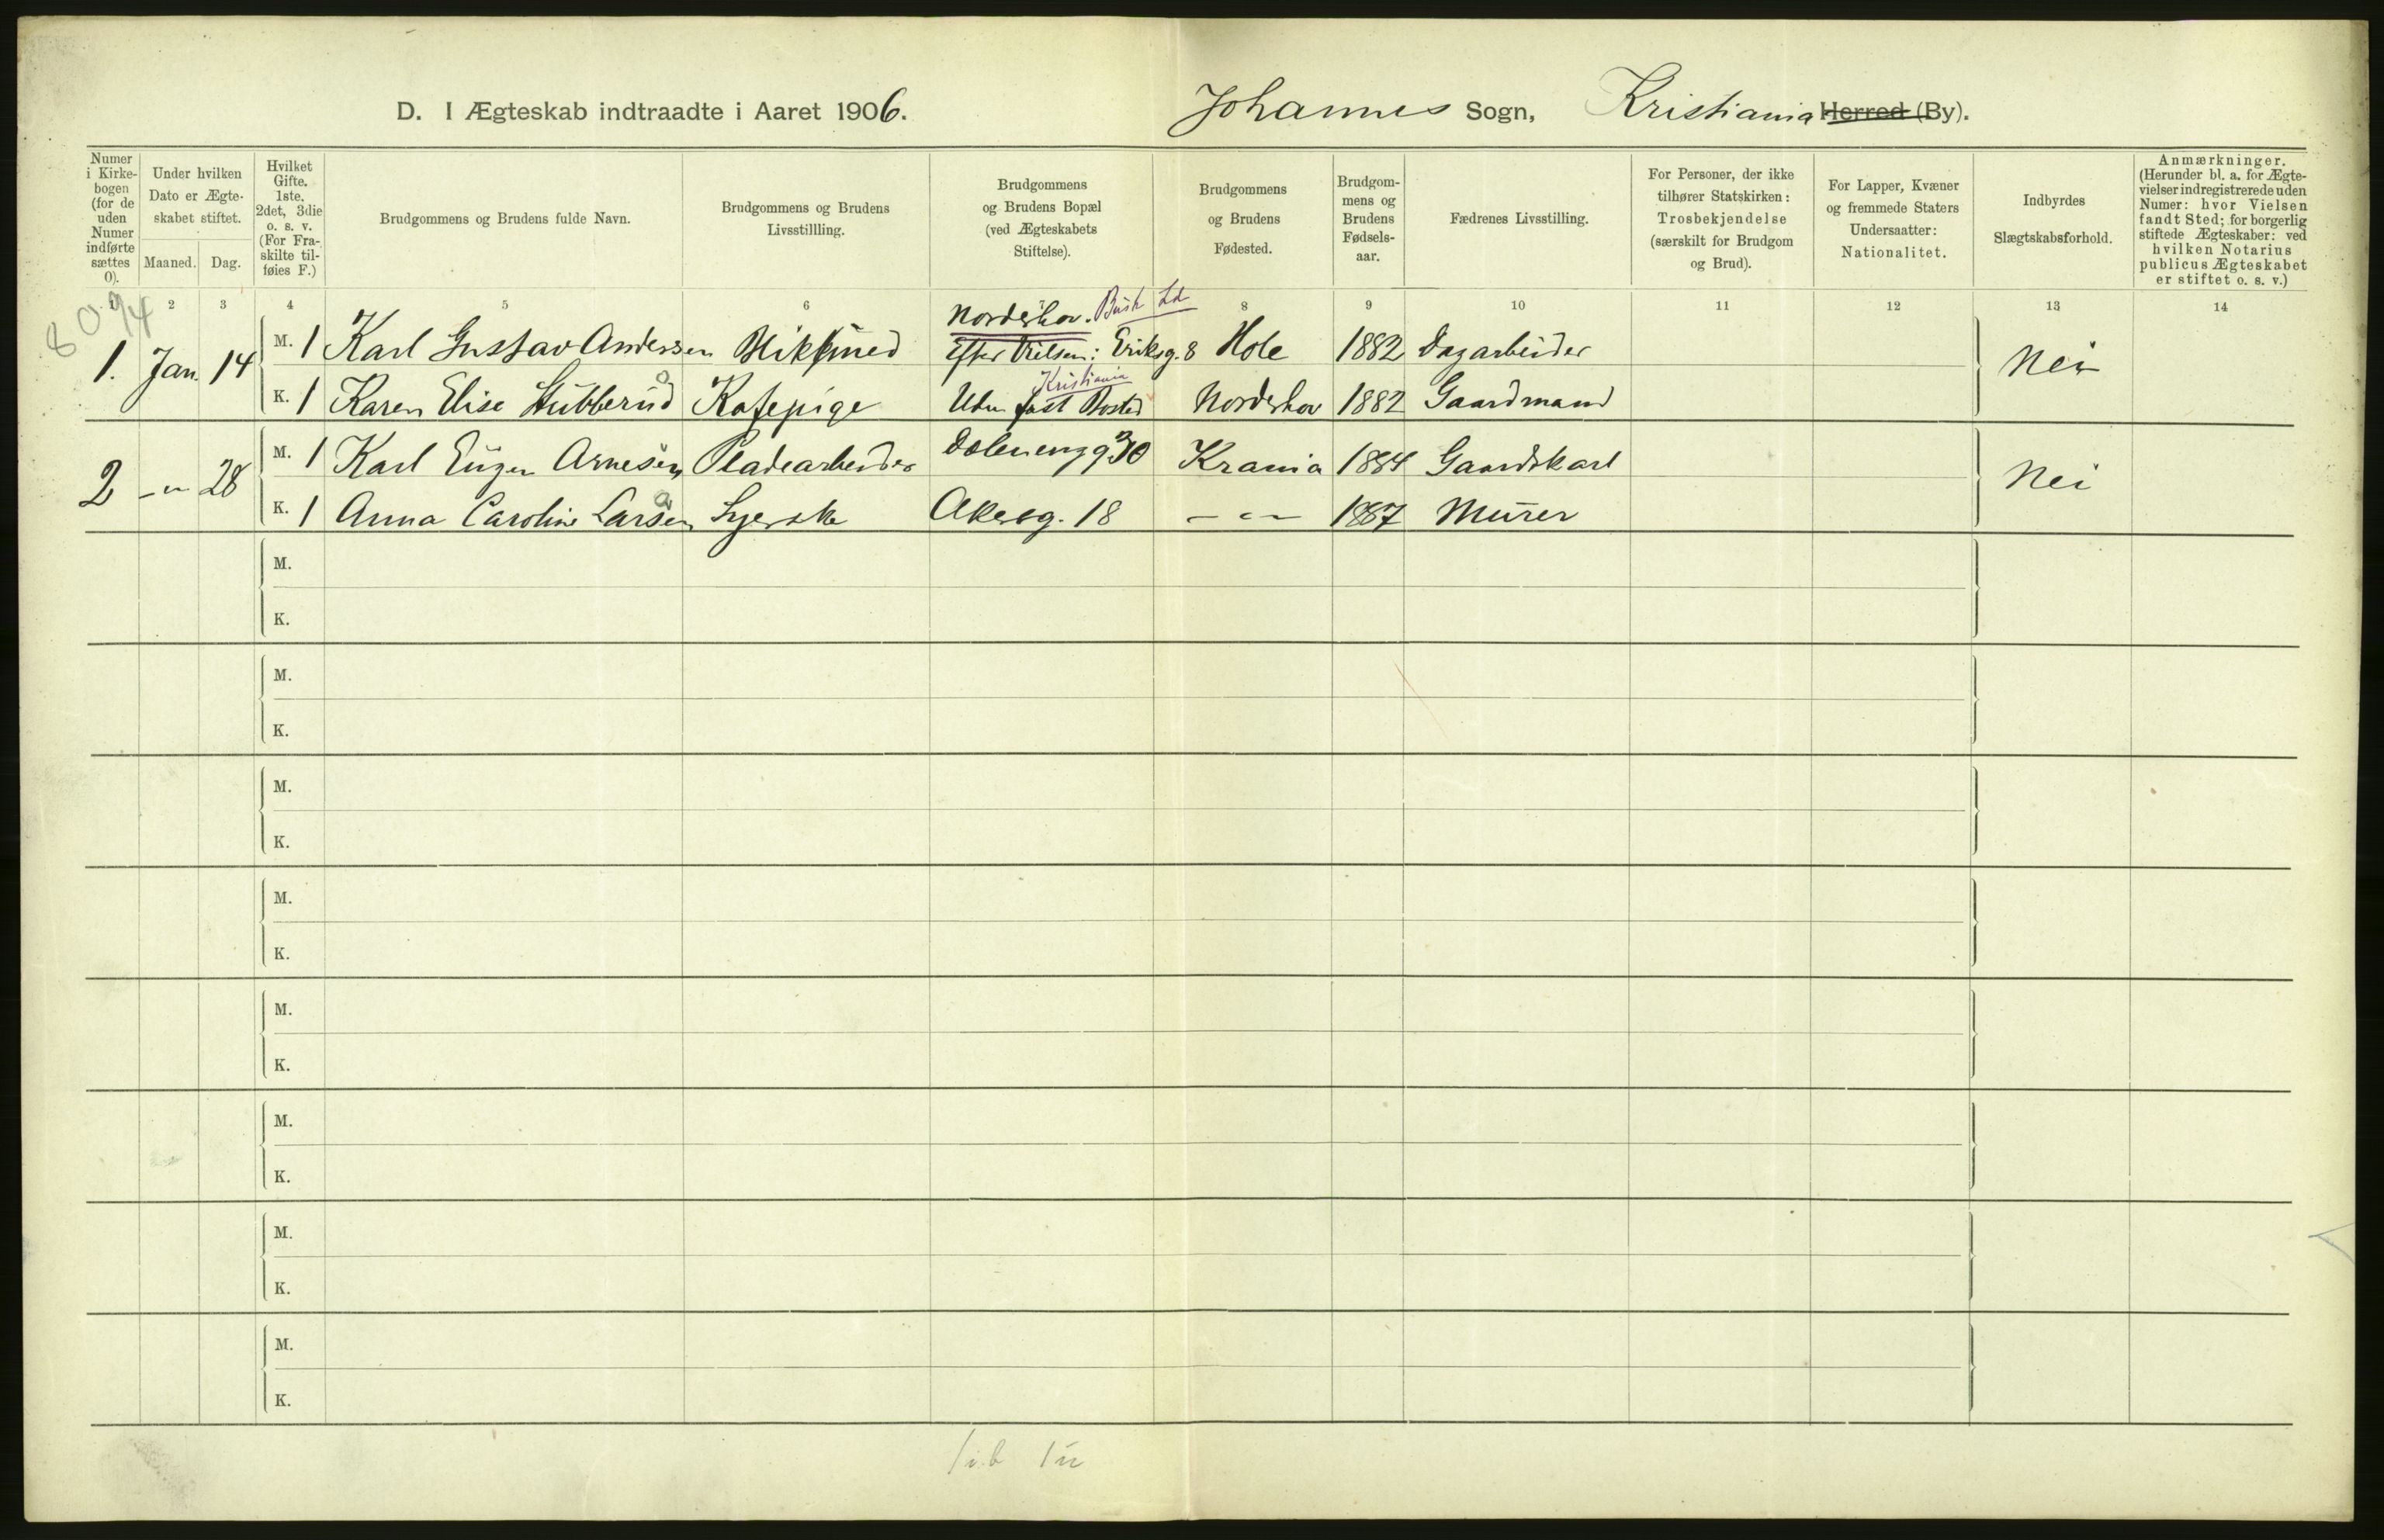 D. I Ægteskab indtraadte i Aaret 1906. Johannes Sogn, Kristiania Herred (By).
Numer i Kirkebogen (for de uden Numer indførte sættes 0).
Under hvilken Dato er Ægteskabet stiftet.
Maaned. Dag.
Hvilket Gifte. 1ste, 2det, 3die o. s. v. (For Fraskilte tilføies F.)
Brudgommens og Brudens fulde Navn.
Brudgommens og Brudens Livsstillling.
Brudgommens og Brudens Bopæl (ved Ægteskabets Stiftelse).
Brudgommens og Brudens Fødested.
Brudgommens og Brudens Fødselsaar.
Fædrenes Livsstilling.
For Personer, der ikke tilhører Statskirken: Trosbekjendelse (særskilt for Brudgom og Brud).
For Lapper, Kvæner og fremmede Staters Undersaatter: Nationalitet.
Indbyrdes Slægtskabsforhold.
Anmærkninger. (Herunder bl. a. for Ægtevielser indregistrerede uden Numer: hvor Vielsen fandt Sted; for borgerlig stiftede Ægteskaber: ved hvilken Notarius publicus Ægteskabet er stiftet o. s. v.)
1 2 3 4 5 6 8 9 10 11 12 13 14
Norderhov.
1. Jan. 14 M. 1 Karl Gustav Andersen Bliksmed Efter Vielsen: Eriksg. 8 Hole 1882 Dagarbeider Nei
Kristiania
K. 1 Karen Elise Stubberud Kafepige Uden fast Bosted Norderhov 1882 Gaardmand
2 -"- 28 M. 1 Karl Eugen Arnesen Pladearbeider Dælenengg 30 Krania 1884 Gaardskarl Nei
K. 1 Anna Caroline Larsen Syerske Akersg. 18 -"- 1887 Murer
M.
K.
M.
K.
M.
K.
M.
K.
M.
K.
M.
K.
M.
K.
M.
K.